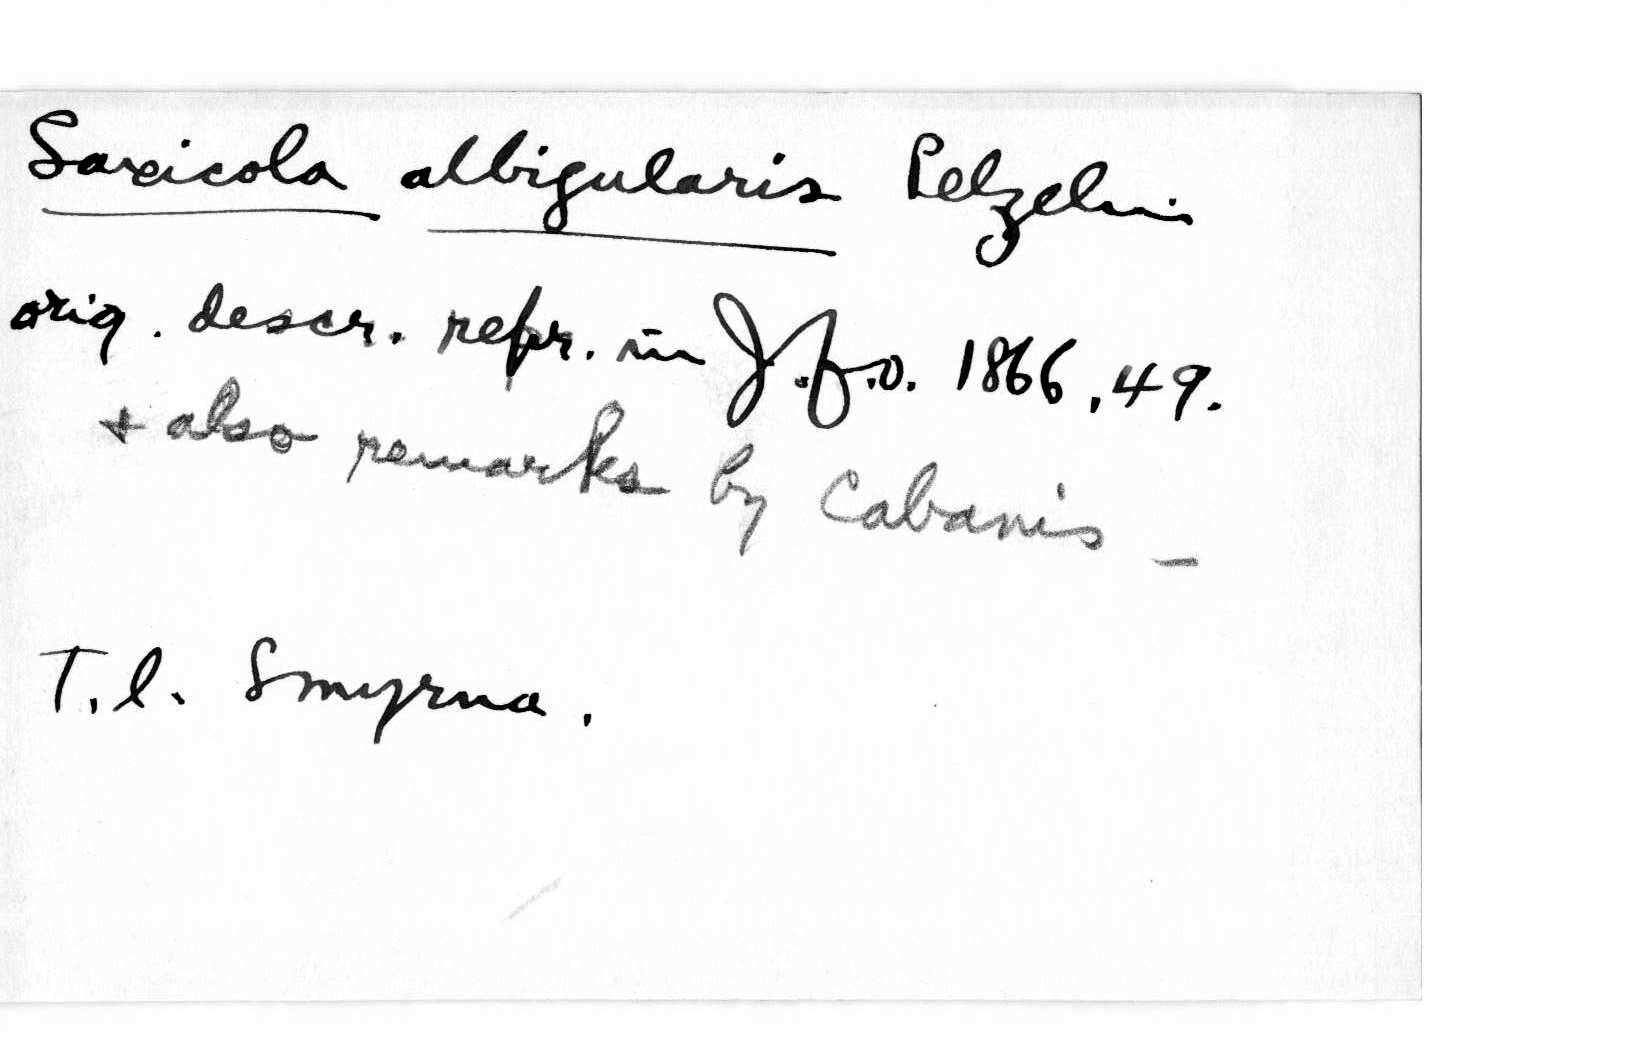 Saxicola albigularis Pelzelni
orig. descr. repr. in J.f.O. 1866, 49.
+ also remarks by Cabanis –
T. l. Smyrna.